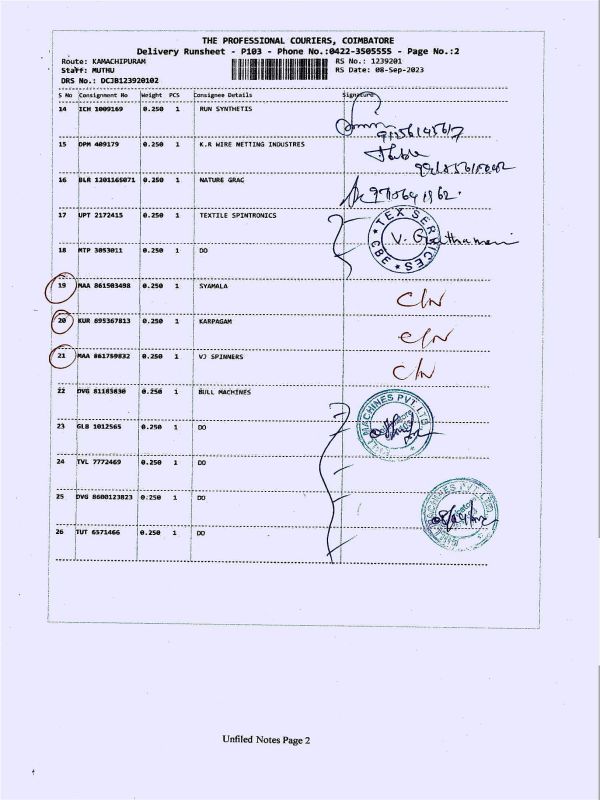 THE PROFESSIONAL COURIERS, COIMBATORE
Delivery Runsheet - P103 - Phone No.:0422-3505555 - Page No.:2
Route: KAMACHIPURAM RS No.: 1239201
Staff: MUTHU RS Date: 08-Sep-2023
DRS No.: DCJB123920102
S No Consignment No Weight PCS Consignee Details Signature
14 ICH 1009169 0.250 1 RUN SYNTHETIS
15 DPM 409179 0.250 1 K.R WIRE NETTING INDUSTRES
16 BLR 1201165071 0.250 1 NATURE GRAC
17 UPT 2172415 0.250 1 TEXTILE SPINTRONICS
TEX SERVICES
CBE
18 MTP 3053011 0.250 1 DO
19 MAA 861503498 0.250 1 SYAMALA C/N
20 KUR 695367813 0.250 1 KARPAGAM C/N
21 MAA 861759832 0.250 1 VJ SPINNERS C/N
22 DVG 81185830 0.250 1 BULL MACHINES
MACHINES PVT. LTD.
23 GLB 1012565 0.250 1 DO
24 TVL 7772469 0.250 1 DO
25 DVG 8600123823 0.250 1 DO
MACHINES PVT. LTD.
26 TUT 6571466 0.250 1 DO
Unfiled Notes Page 2